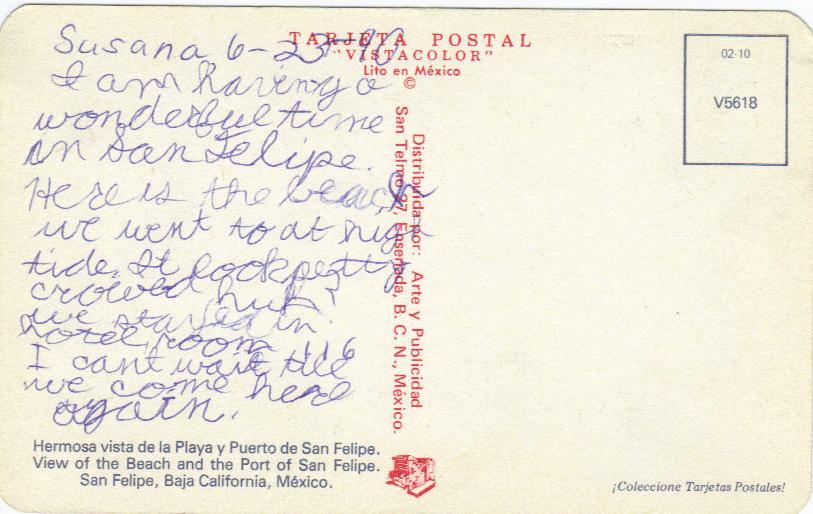 Susana 6-23-90
I am having a
wonderful time
in San Felipe.
Here is the beach
we went to at high
tide. It look petty
crowed huh?
we stayed in
hotel room 116
I cant wait till
we come here
again.
Hermosa vista de la Playa y Puerto de San Felipe.
View of the Beach and the Port of San Felipe.
San Felipe, Baja California, México.
TARJETA POSTAL
"VISTACOLOR"
Lito en México
©
Distribuida por: Arte y Publicidad
San Telmo 97, Ensenada, B. C. N., México.
02-10
V5618
¡Coleccione Tarjetas Postales!